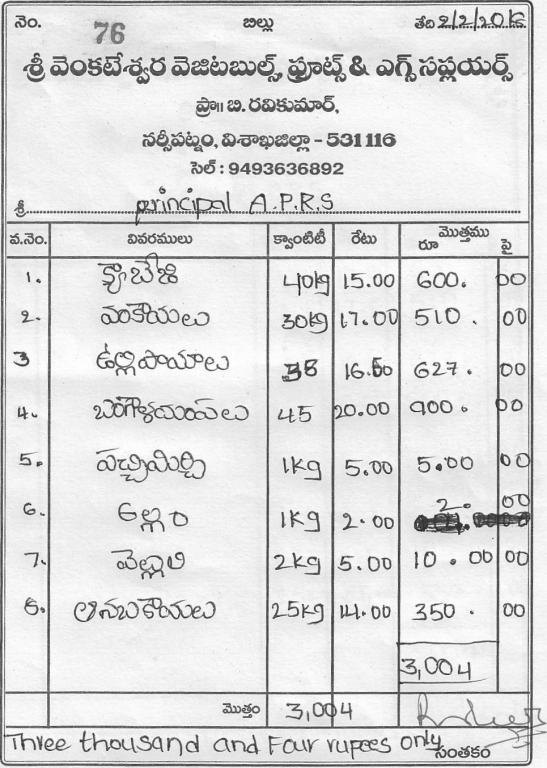 నెం. 76 బిల్లు తేది 2/2/2018
శ్రీ వెంకటేశ్వర వెజిటబుల్స్, ఫ్రూట్స్ & ఎగ్స్ సప్లయర్స్
ప్రొ॥ బి. రవికుమార్,
నర్సీపట్నం, విశాఖజిల్లా - 531116
సెల్ : 9493636892
శ్రీ principal A.P.R.S
వ.నెం. వివరములు క్వాంటిటీ రేటు మొత్తము
రూ పై
1. క్యాబేజి 40kg 15.00 600. 00
2. వంకాయలు 30kg 17.00 510. 00
3 ఉల్లిపాయాలు 38 16.50 627. 00
4. బంగాళదుంపలు 45 20.00 900. 00
5. పచ్చిమిర్చి 1kg 5.00 5.00 00
6. అల్లం 1kg 2.00 2. 00
7. వెల్లుల్లి 2kg 5.00 10.00 00
8. ఆనబకాయలు 25kg 14.00 350. 00
3,004
మొత్తం 3,004
Three thousand and Four rupees only
సంతకం